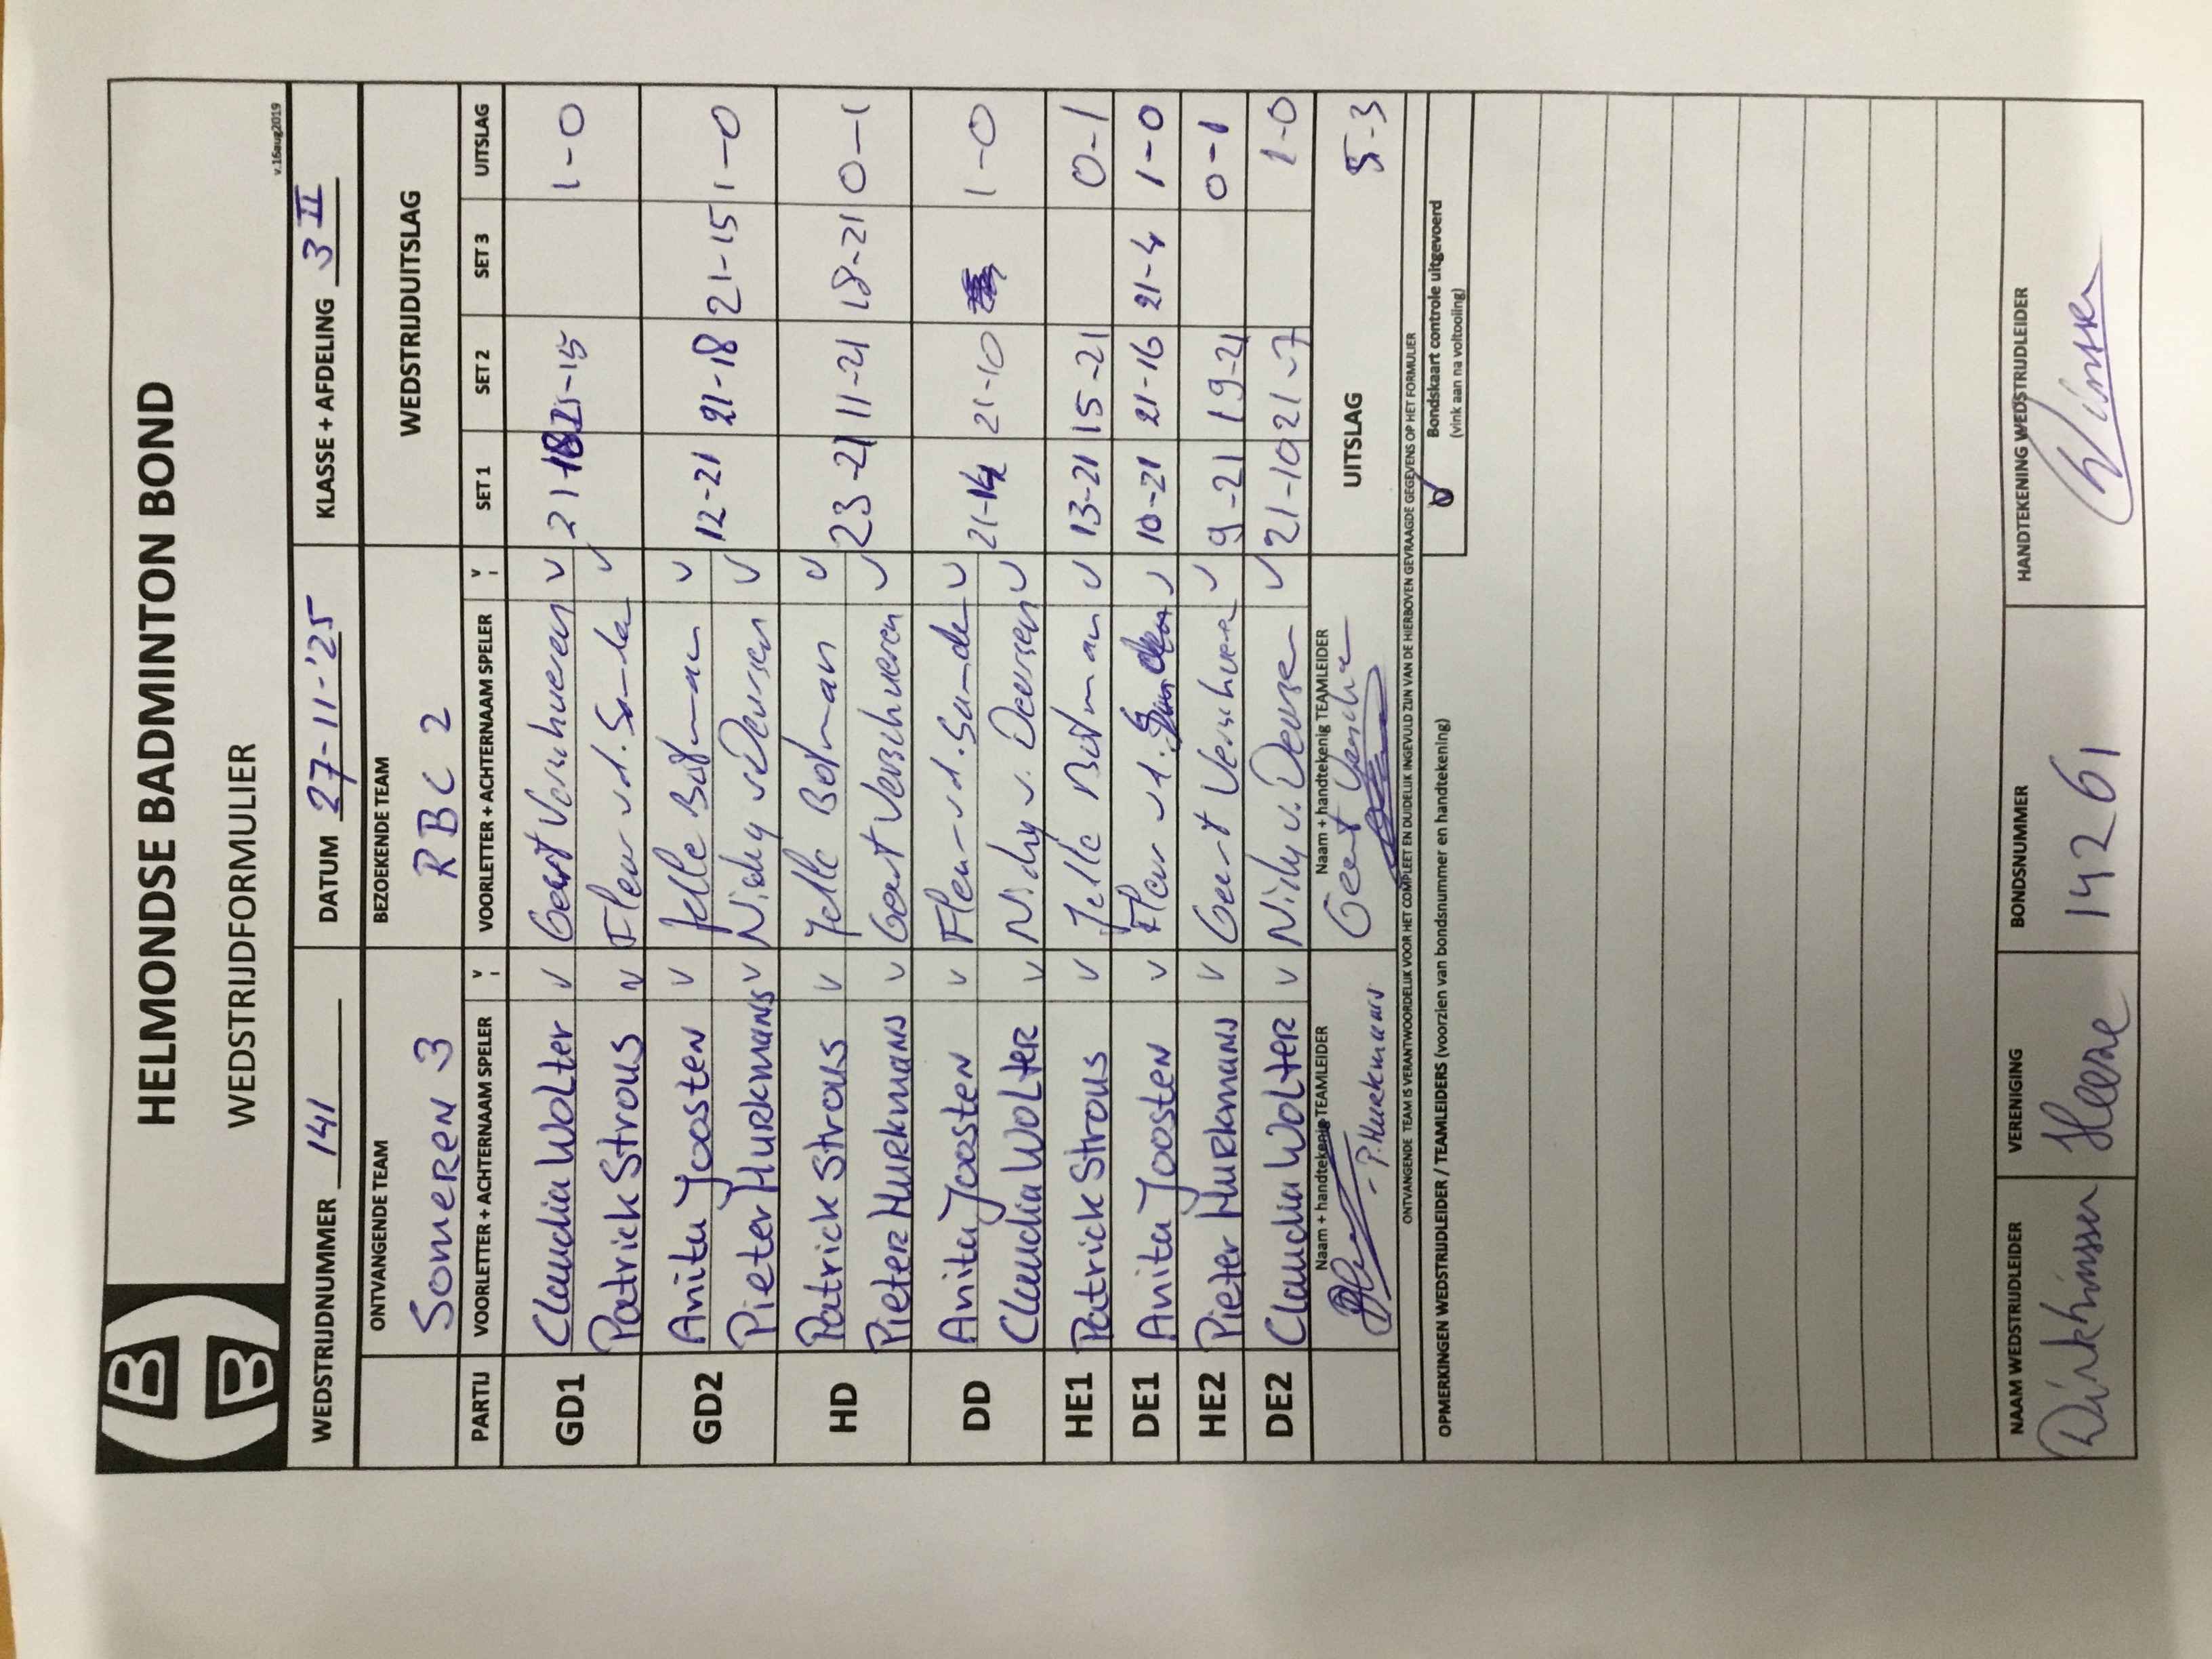 HELMONDSE BADMINTON BOND
WEDSTRIJDFORMULIER
v.16aug2019
WEDSTRIJDNUMMER 141 DATUM 27-11-'25 KLASSE + AFDELING 3 II
ONTVANGENDE TEAM BEZOEKENDE TEAM WEDSTRIJDUITSLAG
SOMEREN 3 RBC 2
PARTIJ VOORLETTER + ACHTERNAAM SPELER V VOORLETTER + ACHTERNAAM SPELER V SET 1 SET 2 SET 3 UITSLAG
GD1 Claudia Wolter v Geert Verschueren v 21-18 21-15 1-0
Patrick Strous v Fleur v.d. Sande v
GD2 Anita Joosten v Jelle Botman v 12-21 21-18 21-15 1-0
Pieter Hurkmans v Nicky v Deursen v
HD Patrick Strous v Jelle Botman v 23-21 11-21 18-21 0-1
Pieter Hurkmans v Geert Verschueren v
DD Anita Joosten v Fleur v.d. Sande v 21-14 21-10 1-0
Claudia Wolter v Nicky v. Deursen v
HE1 Patrick Strous v Jelle Botman v 13-21 15-21 0-1
DE1 Anita Joosten v Fleur v.d. Sanden v 10-21 21-16 21-4 1-0
HE2 Pieter Hurkmans v Geert Verschueren v 9-21 19-21 0-1
DE2 Claudia Wolter v Nicky v. Deursen v 21-10 21-7 1-0
Naam + handtekenig TEAMLEIDER Naam + handtekenig TEAMLEIDER UITSLAG 5-3
- P. Hurkmans Geert
ONTVANGENDE TEAM IS VERANTWOORDELIJK VOOR HET COMPLEET EN DUIDELIJK INGEVULD ZIJN VAN DE HIERBOVEN GEVRAAGDE GEGEVENS OP HET FORMULIER
OPMERKINGEN WEDSTRIJDLEIDER / TEAMLEIDERS (voorzien van bondsnummer en handtekening)
Bondskaart controle uitgevoerd
(vink aan na voltooiing)
NAAM WEDSTRIJDLEIDER VERENIGING BONDSNUMMER HANDTEKENING WEDSTRIJDLEIDER
14261